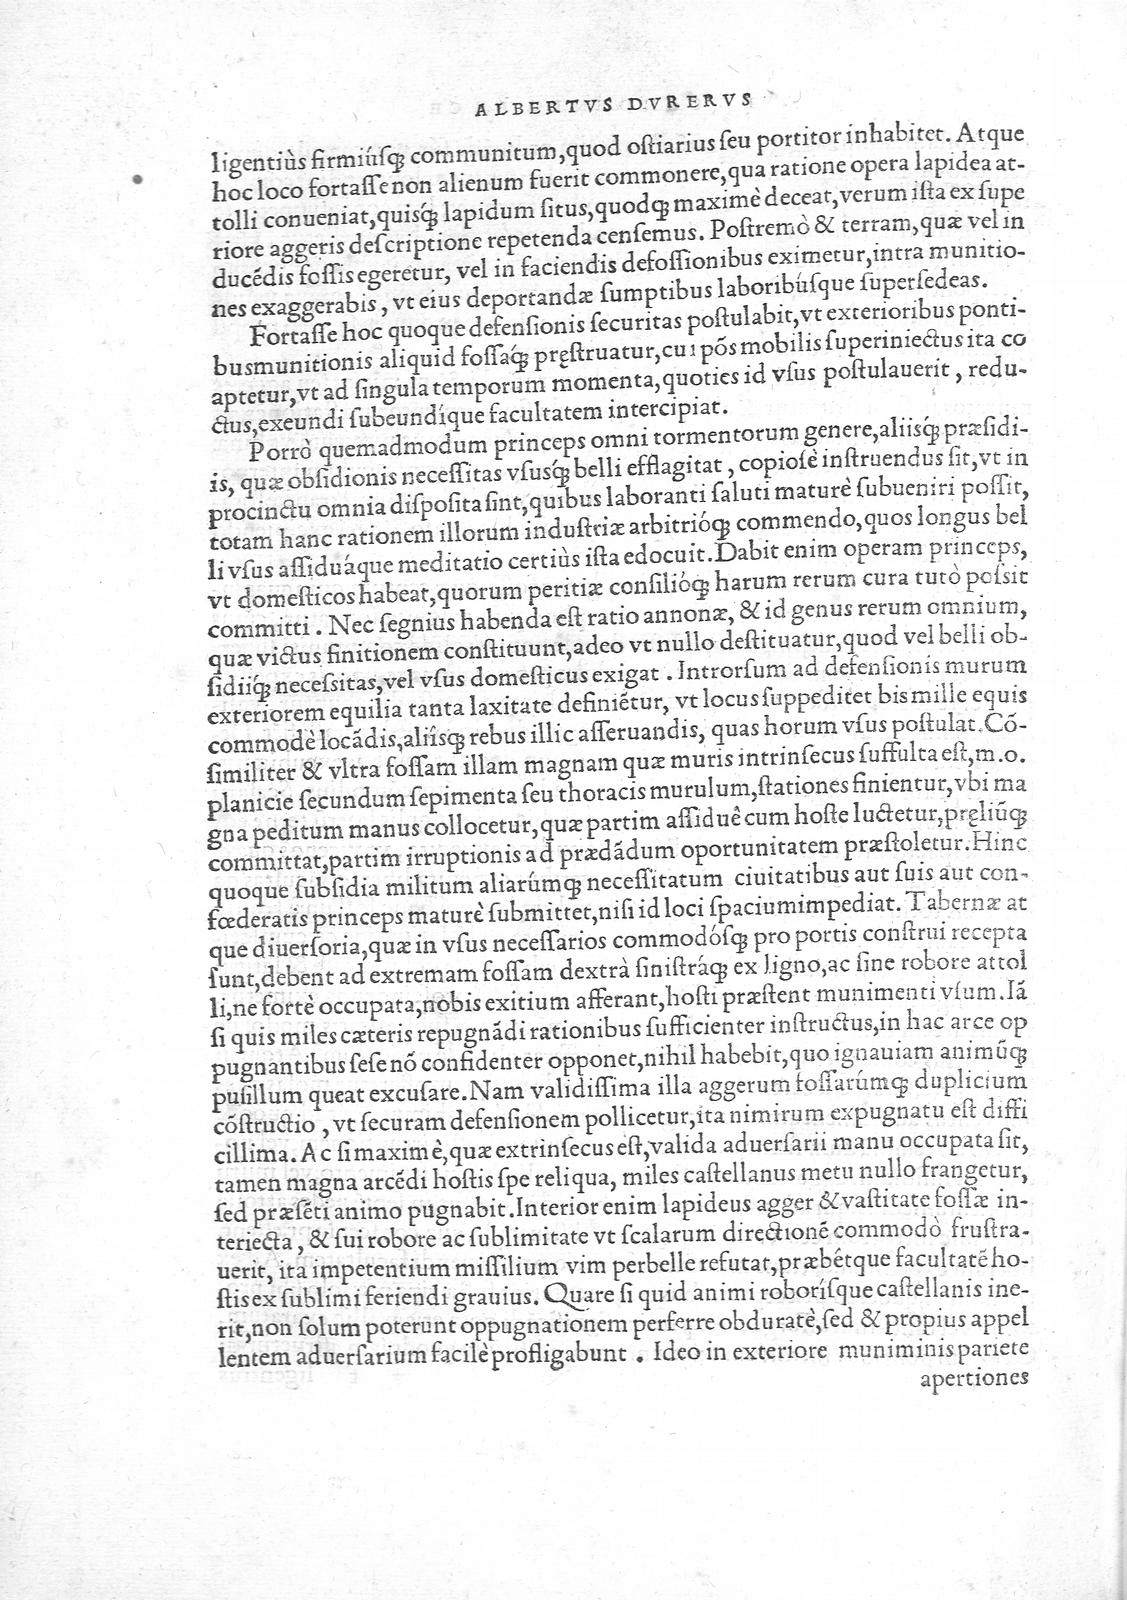 ALBERTVS DVRERVS
ligentiùs firmiúſq́ꝫ communitum,quod oſtiarius ſeu portitor inhabitet. Atque
hoc loco fortaſſe non alienum fuerit commonere,qua ratione opera lapidea at-
tolli conueniat,quisq́ꝫ lapidum ſitus,quodqꝫ maximè deceat,verum iſta ex ſupe
riore aggeris deſcriptione repetenda cenſemus. Poſtremò & terram,quæ vel in
ducẽdis foſſis egeretur, vel in faciendis defoſſionibus eximetur,intra munitio-
nes exaggerabis, vt eius deportandæ ſumptibus laboribúſque ſuperſedeas.
Fortaſſe hoc quoque defenſionis ſecuritas poſtulabit,vt exterioribus ponti-
busmunitionis aliquid foſſaq́ꝫ pręſtruatur,cui põs mobilis ſuperiniectus ita co
aptetur,vt ad ſingula temporum momenta,quoties id vſus poſtulauerit, redu-
ctus,exeundi ſubeundíque facultatem intercipiat.
Porrò quemadmodum princeps omni tormentorum genere,aliisq́ꝫ præſidi-
is, quæ obſidionis neceſſitas vſusq́ꝫ belli efflagitat, copioſè inſtruendus ſit,vt in
procinctu omnia diſpoſita ſint,quibus laboranti ſaluti maturè ſubueniri poſſit,
totam hanc rationem illorum induſtriæ arbitrióqꝫ commendo,quos longus bel
li vſus aſſiduáque meditatio certiùs iſta edocuit. Dabit enim operam princeps,
vt domeſticos habeat,quorum peritiæ conſilióqꝫ harum rerum cura tutò poſsit
committi. Nec ſegnius habenda eſt ratio annonæ, & id genus rerum omnium,
quæ victus finitionem conſtituunt,adeo vt nullo deſtituatur,quod vel belli ob-
ſidiiq́ꝫ neceſsitas,vel vſus domeſticus exigat. Introrſum ad defenſionis murum
exteriorem equilia tanta laxitate definiẽtur, vt locus ſuppeditet bis mille equis
commodè locãdis,aliísqꝫ rebus illic aſſeruandis, quas horum vſus poſtulat. Cõ-
ſimiliter & vltra foſſam illam magnam quæ muris intrinſecus ſuffulta eſt,m.o.
planicie ſecundum ſepimenta ſeu thoracis murulum,ſtationes finientur,vbi ma
gna peditum manus collocetur,quæ partim aſſiduè cum hoſte luctetur,pręliũqꝫ
committat,partim irruptionis ad prædãdum oportunitatem præſtoletur. Hinc
quoque ſubſidia militum aliarúmqꝫ neceſſitatum ciuitatibus aut ſuis aut con-
fœderatis princeps maturè ſubmittet,niſi id loci ſpacium impediat. Tabernæ at
que diuerſoria,quæ in vſus neceſſarios commodóſqꝫ pro portis conſtrui recepta
ſunt,debent ad extremam foſſam dextrà ſiniſtráqꝫ ex ligno,ac ſine robore attol
li,ne fortè occupata,nobis exitium afferant,hoſti præſtent munimenti vſum. Iã
ſi quis miles cæteris repugnãdi rationibus ſufficienter inſtructus,in hac arce op
pugnantibus ſeſe nõ confidenter opponet,nihil habebit,quo ignauiam animũqꝫ
puſillum queat excuſare. Nam validiſſima illa aggerum foſſarúmqꝫ duplicium
cõſtructio, vt ſecuram defenſionem pollicetur,ita nimirum expugnatu eſt diffi
cillima. Ac ſi maximè,quæ extrinſecus eſt,valida aduerſarii manu occupata ſit,
tamen magna arcẽdi hoſtis ſpe reliqua, miles caſtellanus metu nullo frangetur,
ſed præſẽti animo pugnabit. Interior enim lapideus agger & vaſtitate foſſæ in-
teriecta, & ſui robore ac ſublimitate vt ſcalarum directionẽ commodò fruſtra-
uerit, ita impetentium miſſilium vim perbelle refutat,præbétque facultatẽ ho-
ſtis ex ſublimi feriendi grauius. Quare ſi quid animi roboríſque caſtellanis ine-
rit,non ſolum poterunt oppugnationem perferre obduratè,ſed & propius appel
lentem aduerſarium facilè profligabunt. Ideo in exteriore muniminis pariete
apertiones